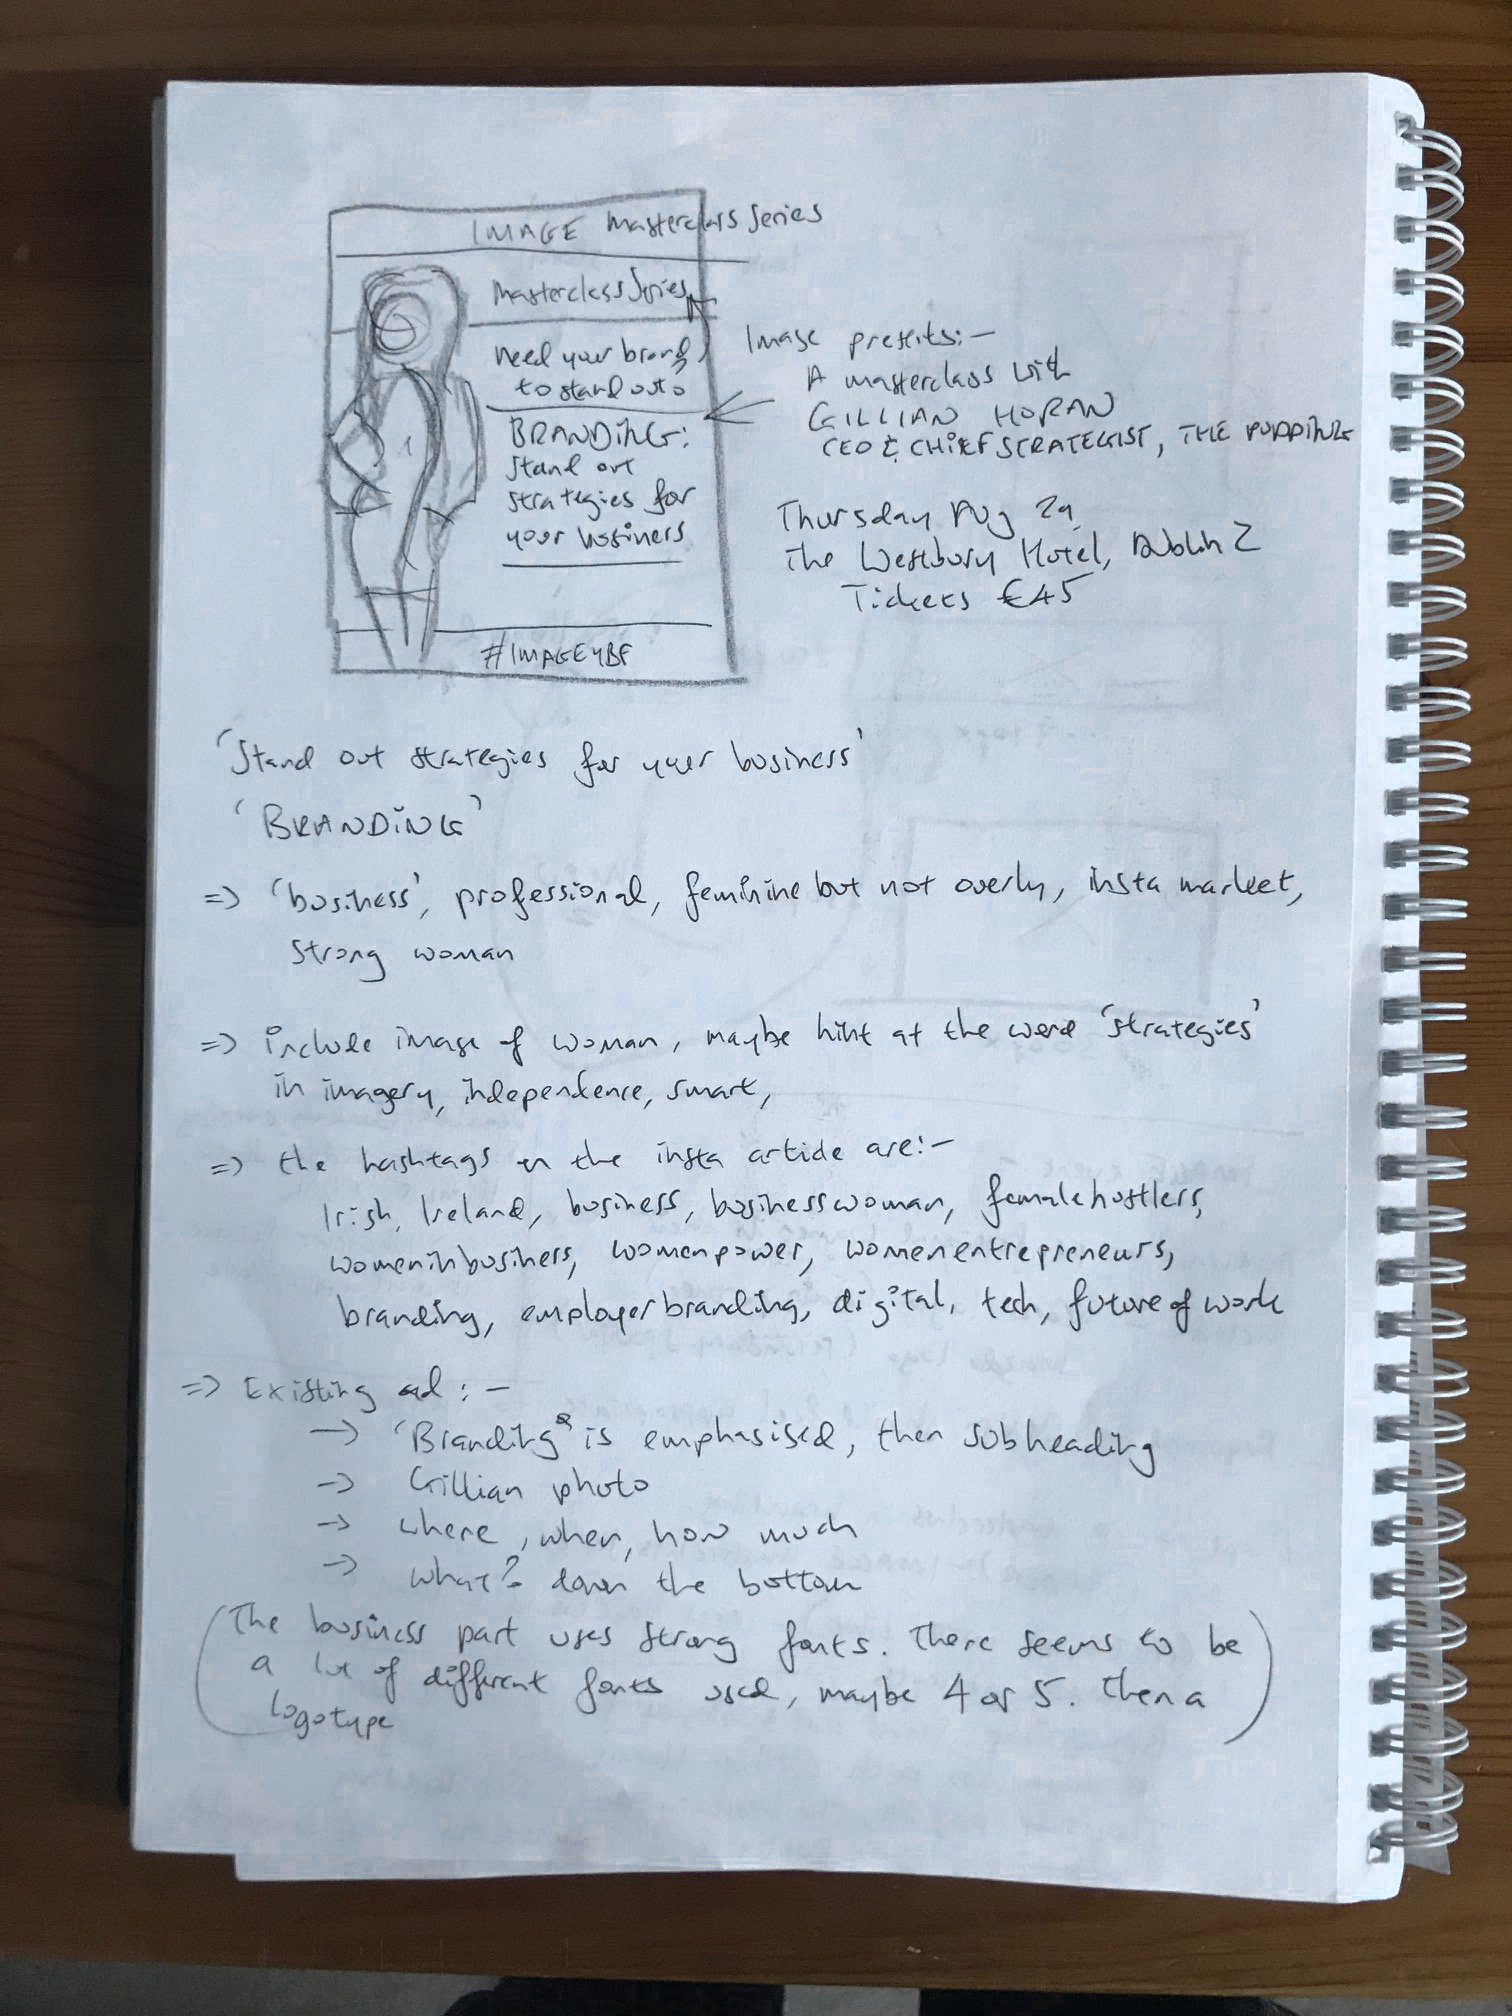 IMAGE Masterclass Series
Masterclass Series
Need your brand
to stand out?
BRANDING:
Stand out
strategies for
your business
#IMAGEYBF
Image presents:-
A masterclass with
GILLIAN HORAN
CEO & CHIEF STRATEGIST, THE PUDDING
Thursday Aug 29
The Westbury Hotel, Dublin 2
Tickets €45
'Stand out strategies for your business'
'BRANDING'
=> 'business', professional, feminine but not overly, insta market,
strong woman
=> include image of woman, maybe hint at the word 'strategies'
in imagery, independence, smart,
=> the hashtags on the insta article are:-
Irish, Ireland, business, businesswoman, femalehustlers,
womeninbusiness, womenpower, womenentrepreneurs,
branding, employerbranding, digital, tech, future of work
=> Existing ad:-
-> 'Branding' is emphasised, then subheading
-> Gillian photo
-> where, when, how much
-> what? down the bottom
(The business part uses strong fonts. There seems to be
a lot of different fonts used, maybe 4 or 5. Then a
logotype)